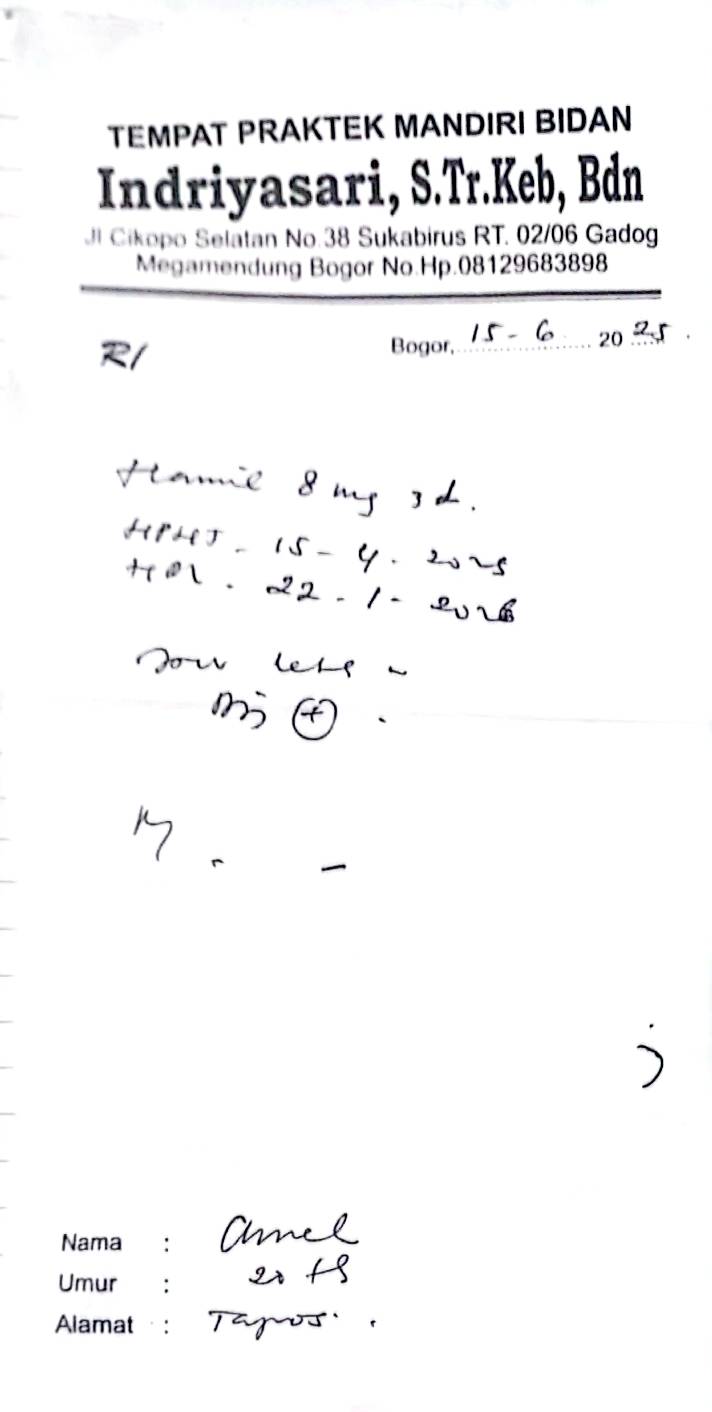 TEMPAT PRAKTEK MANDIRI BIDAN
Indriyasari, S.Tr.Keb, Bdn
Jl Cikopo Selatan No 38 Sukabirus RT. 02/06 Gadog
Megamendung Bogor No.Hp.08129683898
R/
Bogor, 15 - 6 2025
Hamil 8 mg 3 d.
HPHT - 15 - 4 - 2025
22 - 1 - 2026
(+)
Nama : Amel
Umur : 20 th
Alamat : Tapos